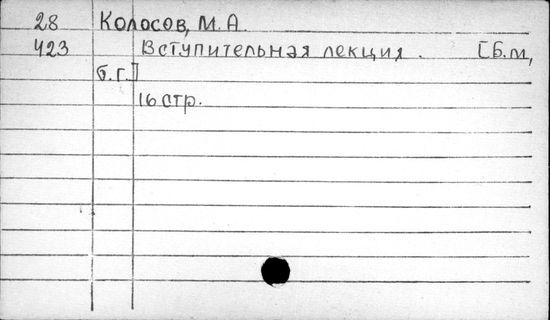 28 Колосов, М. А.
423 Вступительная лекция. [Б. м,
б. г.]
16 стр.